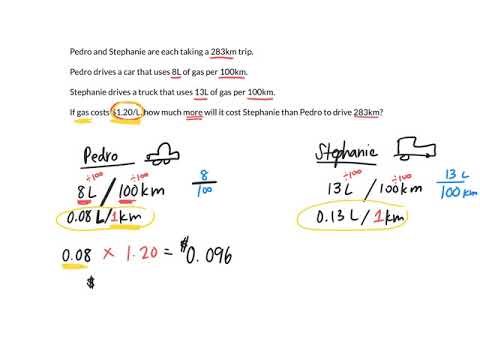 Pedro and Stephanie are each taking a 283km trip.
Pedro drives a car that uses 8L of gas per 100km.
Stephanie drives a truck that uses 13L of gas per 100km.
If gas costs $1.20/L, how much more will it cost Stephanie than Pedro to drive 283km?
Pedro
÷100 ÷100
8L / 100km
8/100
0.08 L/1km
0.08 × 1.20 = $0.096
$
Stephanie
÷100 ÷100
13L / 100km
13 L/100 km
0.13 L / 1km